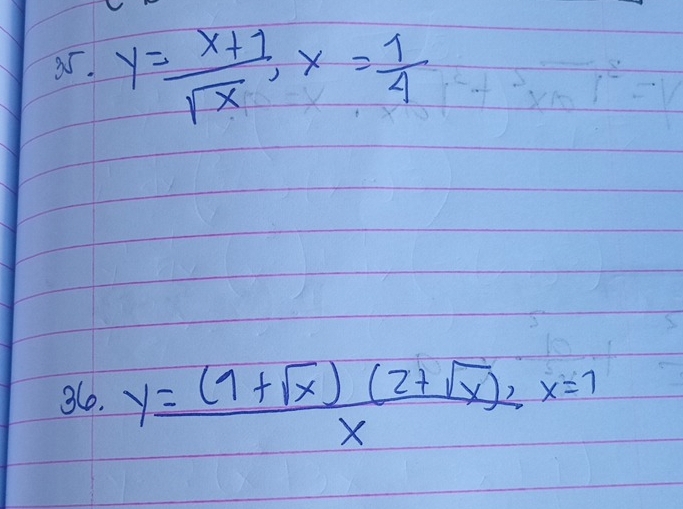 35. y = x+1 / √x , x = 1/4
36. y = (1 + √x) (2 + √x) / x , x = 1